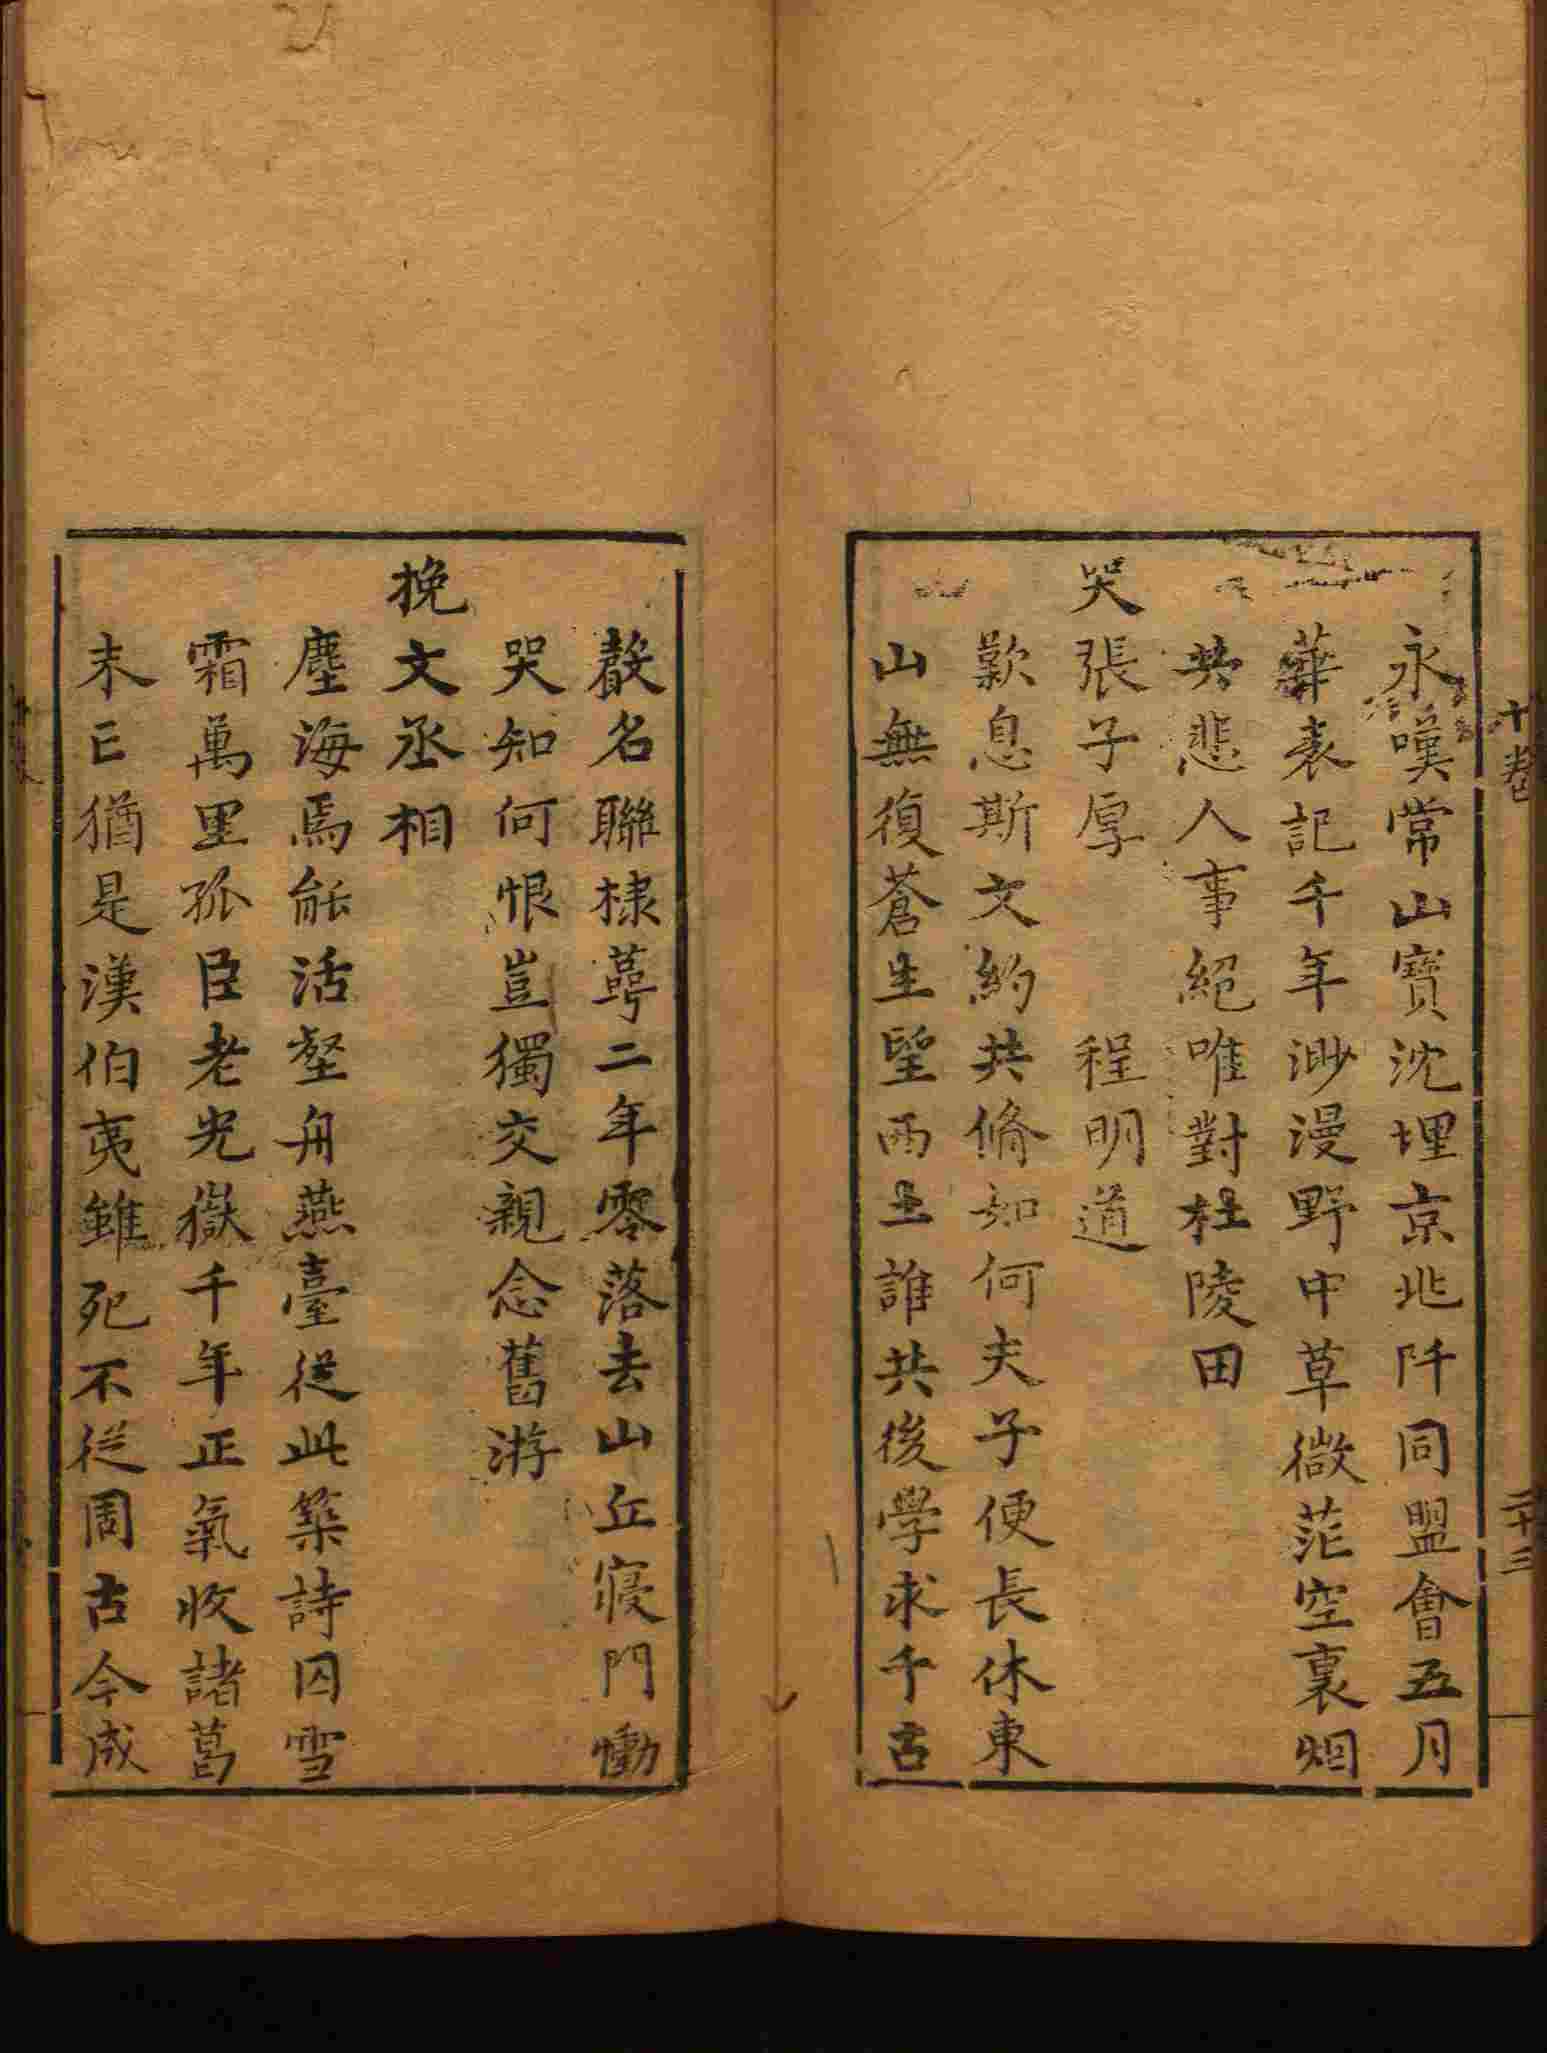 十卷 二十三
永嘆常山寶沈埋京兆阡同盟會五月
華表記千年渺漫野中草微茫空裏烟
共悲人事絕唯對杜陵田
哭張子厚 程明道
歎息斯文約共脩如何夫子便長休東
山無復蒼生望西土誰共後學求千古
聲名聯棣萼二年零落去山丘寢門慟
哭知何恨豈獨交親念舊游
挽文丞相
塵海焉能活壑舟燕臺從此築詩囚雪
霜萬里孤臣老光嶽千年正氣收諸葛
未亡猶是漢伯夷雖死不從周古今成